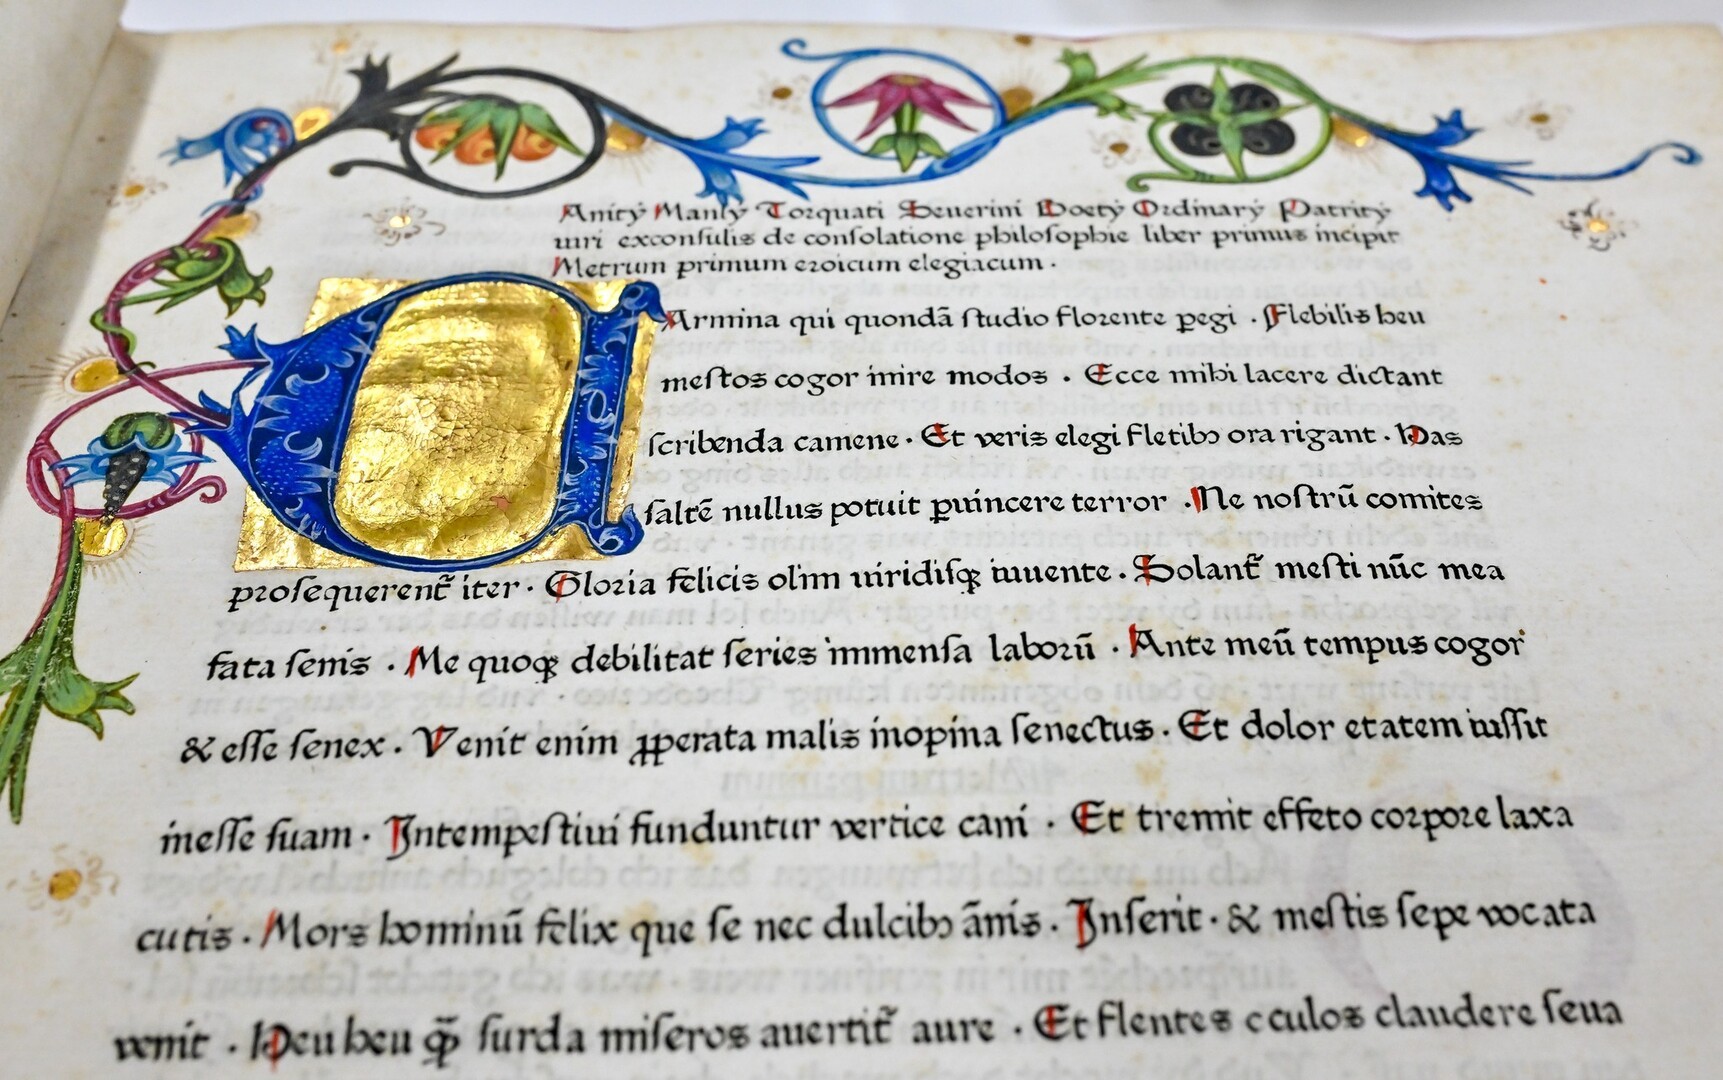 Anitÿ Manlÿ Torquati Seuerini Boetÿ Ordinarÿ Patritÿ
uiri exconſulis de conſolatione philoſophie liber primus incipit
Metrum primum eroicum elegiacum ·
CArmina qui quondā ſtudio florente ꝑegi · Flebilis heu
meſtos cogor inire modos · Ecce mihi lacere dictant
ſcribenda camene · Et veris elegi fletibꝫ ora rigant · Has
ſaltē nullus potuit ꝑuincere terror · Ne noſtrū comites
proſequerent᷑ iter · Gloria felicis olim uiridiſqꝫ iuuente · Solant᷑ meſti nūc mea
fata ſenis · Me quoqꝫ debilitat ſeries immenſa laborū · Ante meū tempus cogor
& eſſe ſenex · Venit enim ꝓperata malis inopina ſenectus · Et dolor etatem iuſſit
ineſſe ſuam · Intempeſtiui funduntur vertice cani · Et tremit effeto corpore laxa
cutis · Mors hominū felix que ſe nec dulcibꝫ ānis · Inſerit · & meſtis ſepe vocata
venit · Heu heu qꝫ̄ ſurda miſeros auertit᷑ aure · Et flentes oculos claudere ſeua